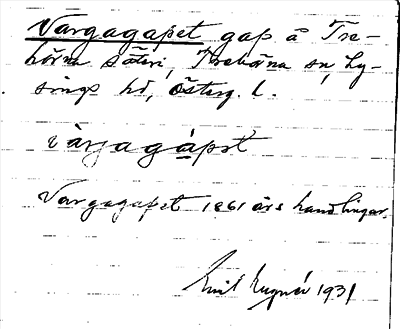 Vargagapet gap å Tre-
hörna säteri, Trehörna sn, Ly-
sings hd, Österg. l.
vàrjagápet
Vargagapet 1861 års handlingar.
Emil 1931